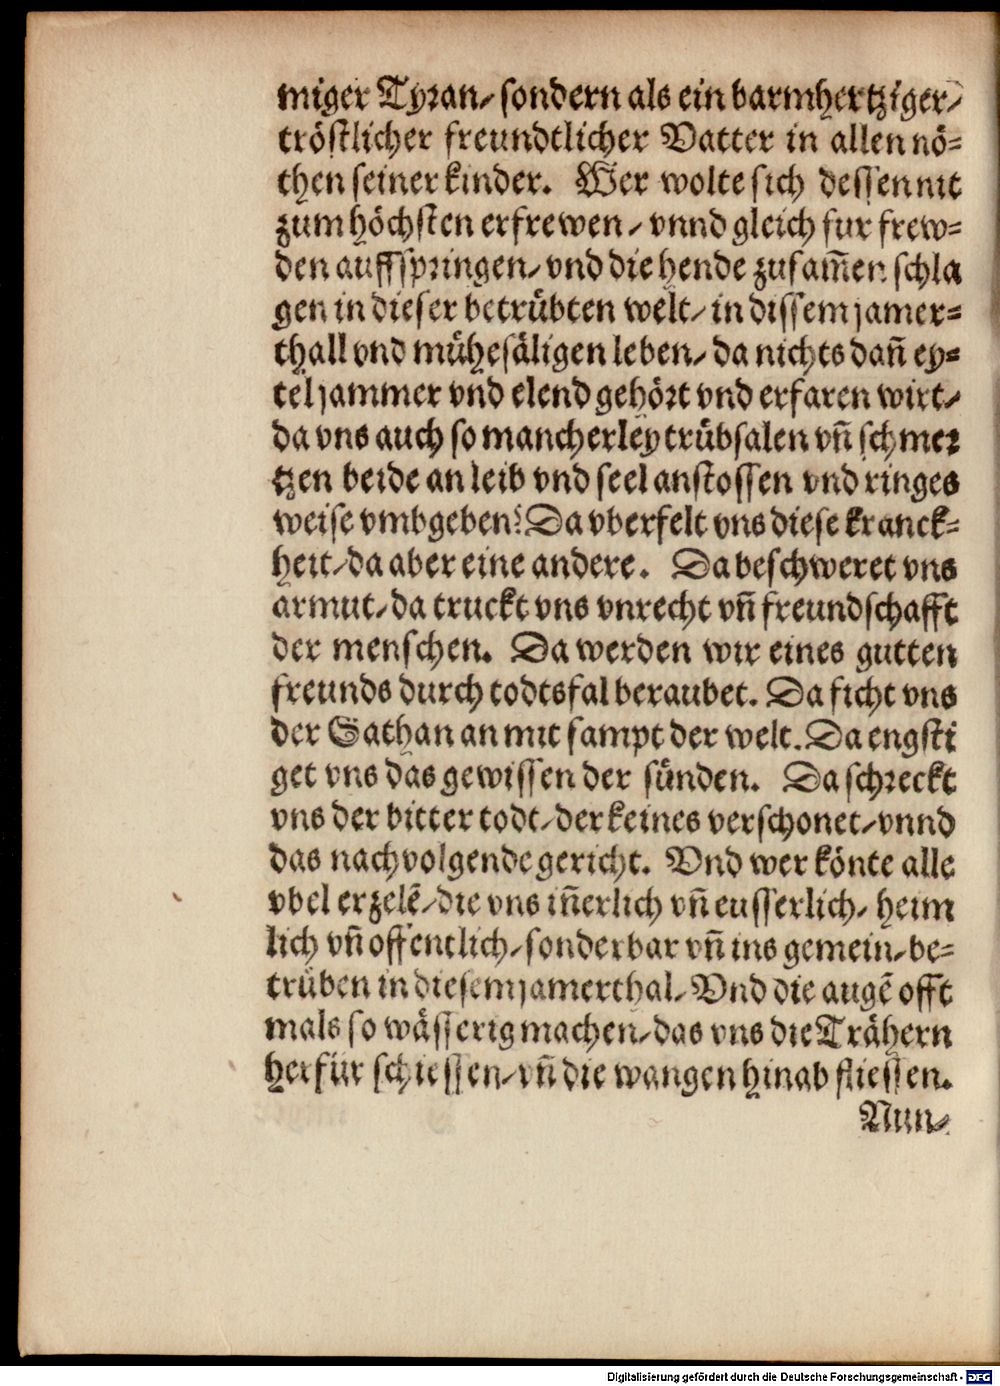 miger Tyꝛan/ sondern als ein barmhertziger/
tröstlicher freundtlicher Vatter in allen nö=
then seiner kinder. Wer wolte sich dessen nit
zum höchsten erfrewen/ vnnd gleich fur frew=
den auffspꝛingen/ vnd die hende zusam̃en schla
gen in dieser betrübten welt/ in dissem jamer=
thall vnd mühesäligen leben/ da nichts dañ ey=
tel jammer vnd elend gehöꝛt vnd erfaren wirt/
da vns auch so mancherley trübsalen vñ schmeꝛ
tzen beide an leib vnd seel anstossen vnd ringes
weise vmbgeben? Da vberfelt vns diese kranck=
heit/ da aber eine andere. Da beschweret vns
armut/ da truckt vns vnrecht vñ freundschafft
der menschen. Da werden wir eines gutten
freunds durch todtsfal beraubet. Da ficht vns
der Sathan an mit sampt der welt. Da engsti
get vns das gewissen der sünden. Da schꝛeckt
vns der bitter todt/ der keines verschonet/ vnnd
das nachvolgende gericht. Vnd wer könte alle
vbel erzelē/ die vns iñerlich vñ eusserlich/ heim
lich vñ offentlich/ sonderbar vñ ins gemein/ be=
trüben in diesem jamerthal/ Vnd die augē offt
mals so wässerig machen/ das vns die Trähern
herfür schiessen/ vñ die wangen hinab fliessen.
Nun/
Digitalisierung gefördert durch die Deutsche Forschungsgemeinschaft - DFG